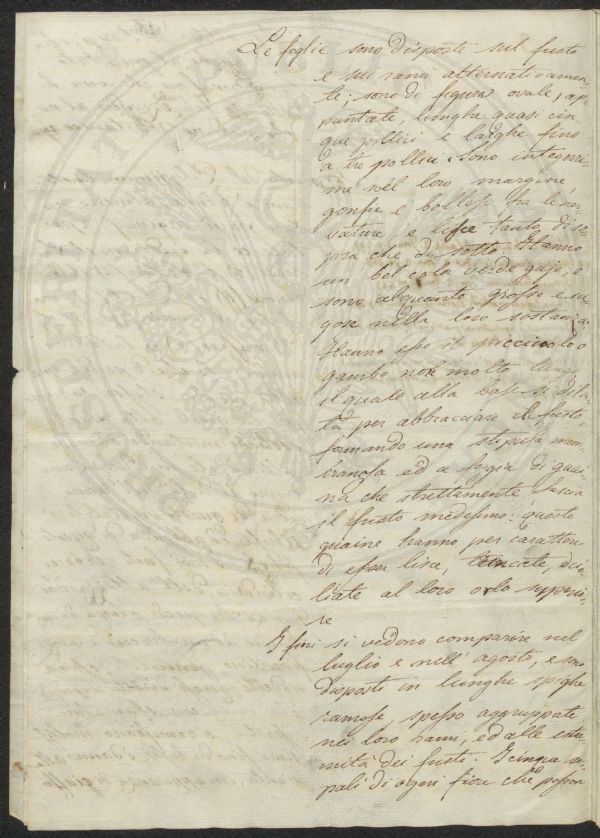 Le foglie sono disposte sul fusto
e sui rami alternativamen-
te; sono di figura ovale, ap-
puntate, lunghe quasi cin-
que pollici e larghe fino
a tre pollici. Sono integerri-
me nel loro margine,
gonfie e bollose tra le ner-
vature e lisce tanto di so-
pra che di sotto. Hanno
un bel color verde gajo, e
sono alquanto grosse e su-
gose nella loro sostanza.
Hanno esse il picciuolo o
gambo non molto lungo
il quale alla base si dila-
ta per abbracciare il fusto,
formando una stipula mem-
branosa ed a foggia di guai-
na che strettamente fascia
il fusto medesimo: queste
guaine hanno per carattere
di esser lisce, troncate, e ci-
liate al loro orlo superio-
re
I fiori si vedono comparire nel
luglio e nell' agosto, e sono
disposti in lunghe spighe
ramose, spesso aggruppate
nei loro rami, ed alle estre-
mità dei fusti. I cinque se-
pali di ogni fiore che posson